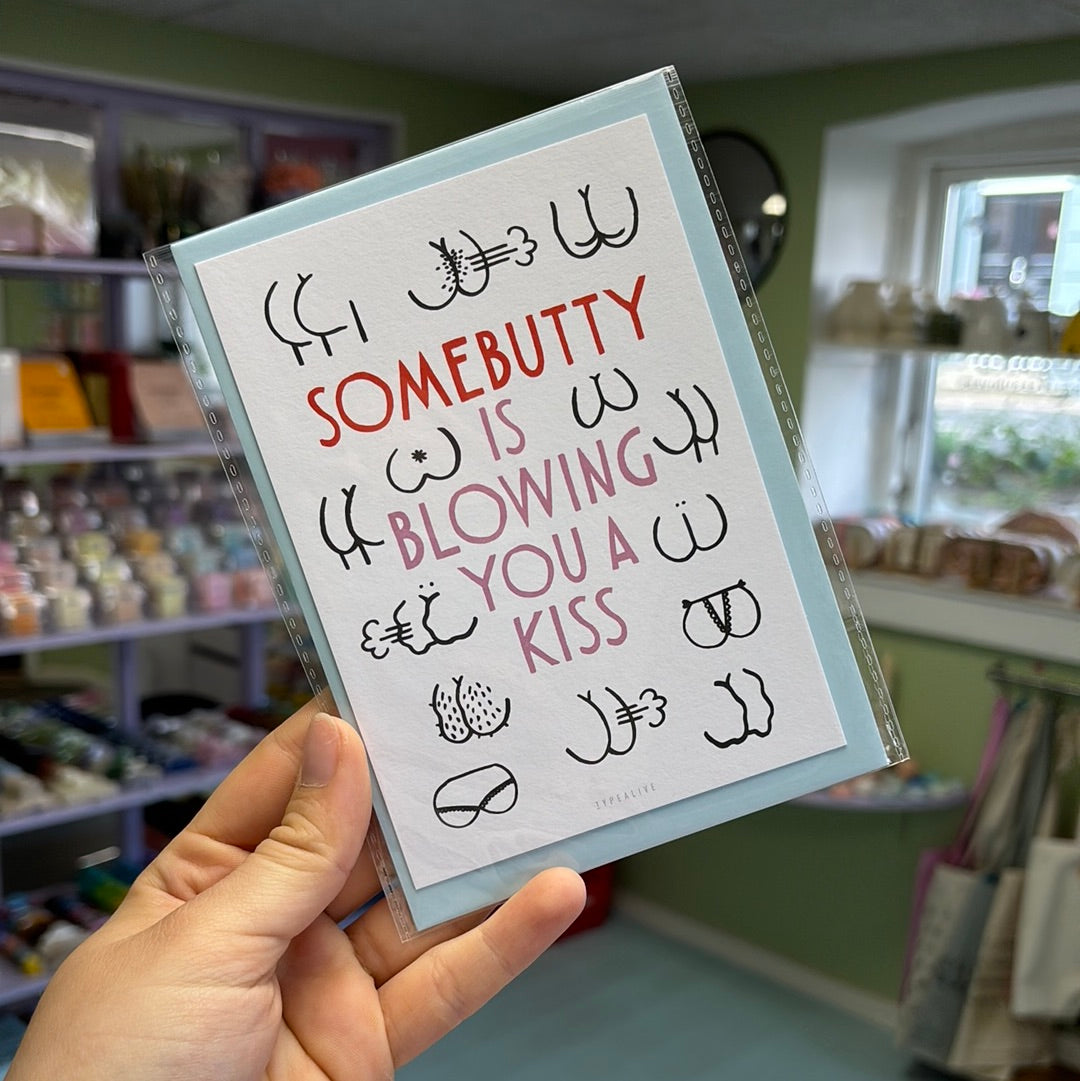 SOMEBUTTY
IS
BLOWING
YOU A
KISS
TYPEALIVE